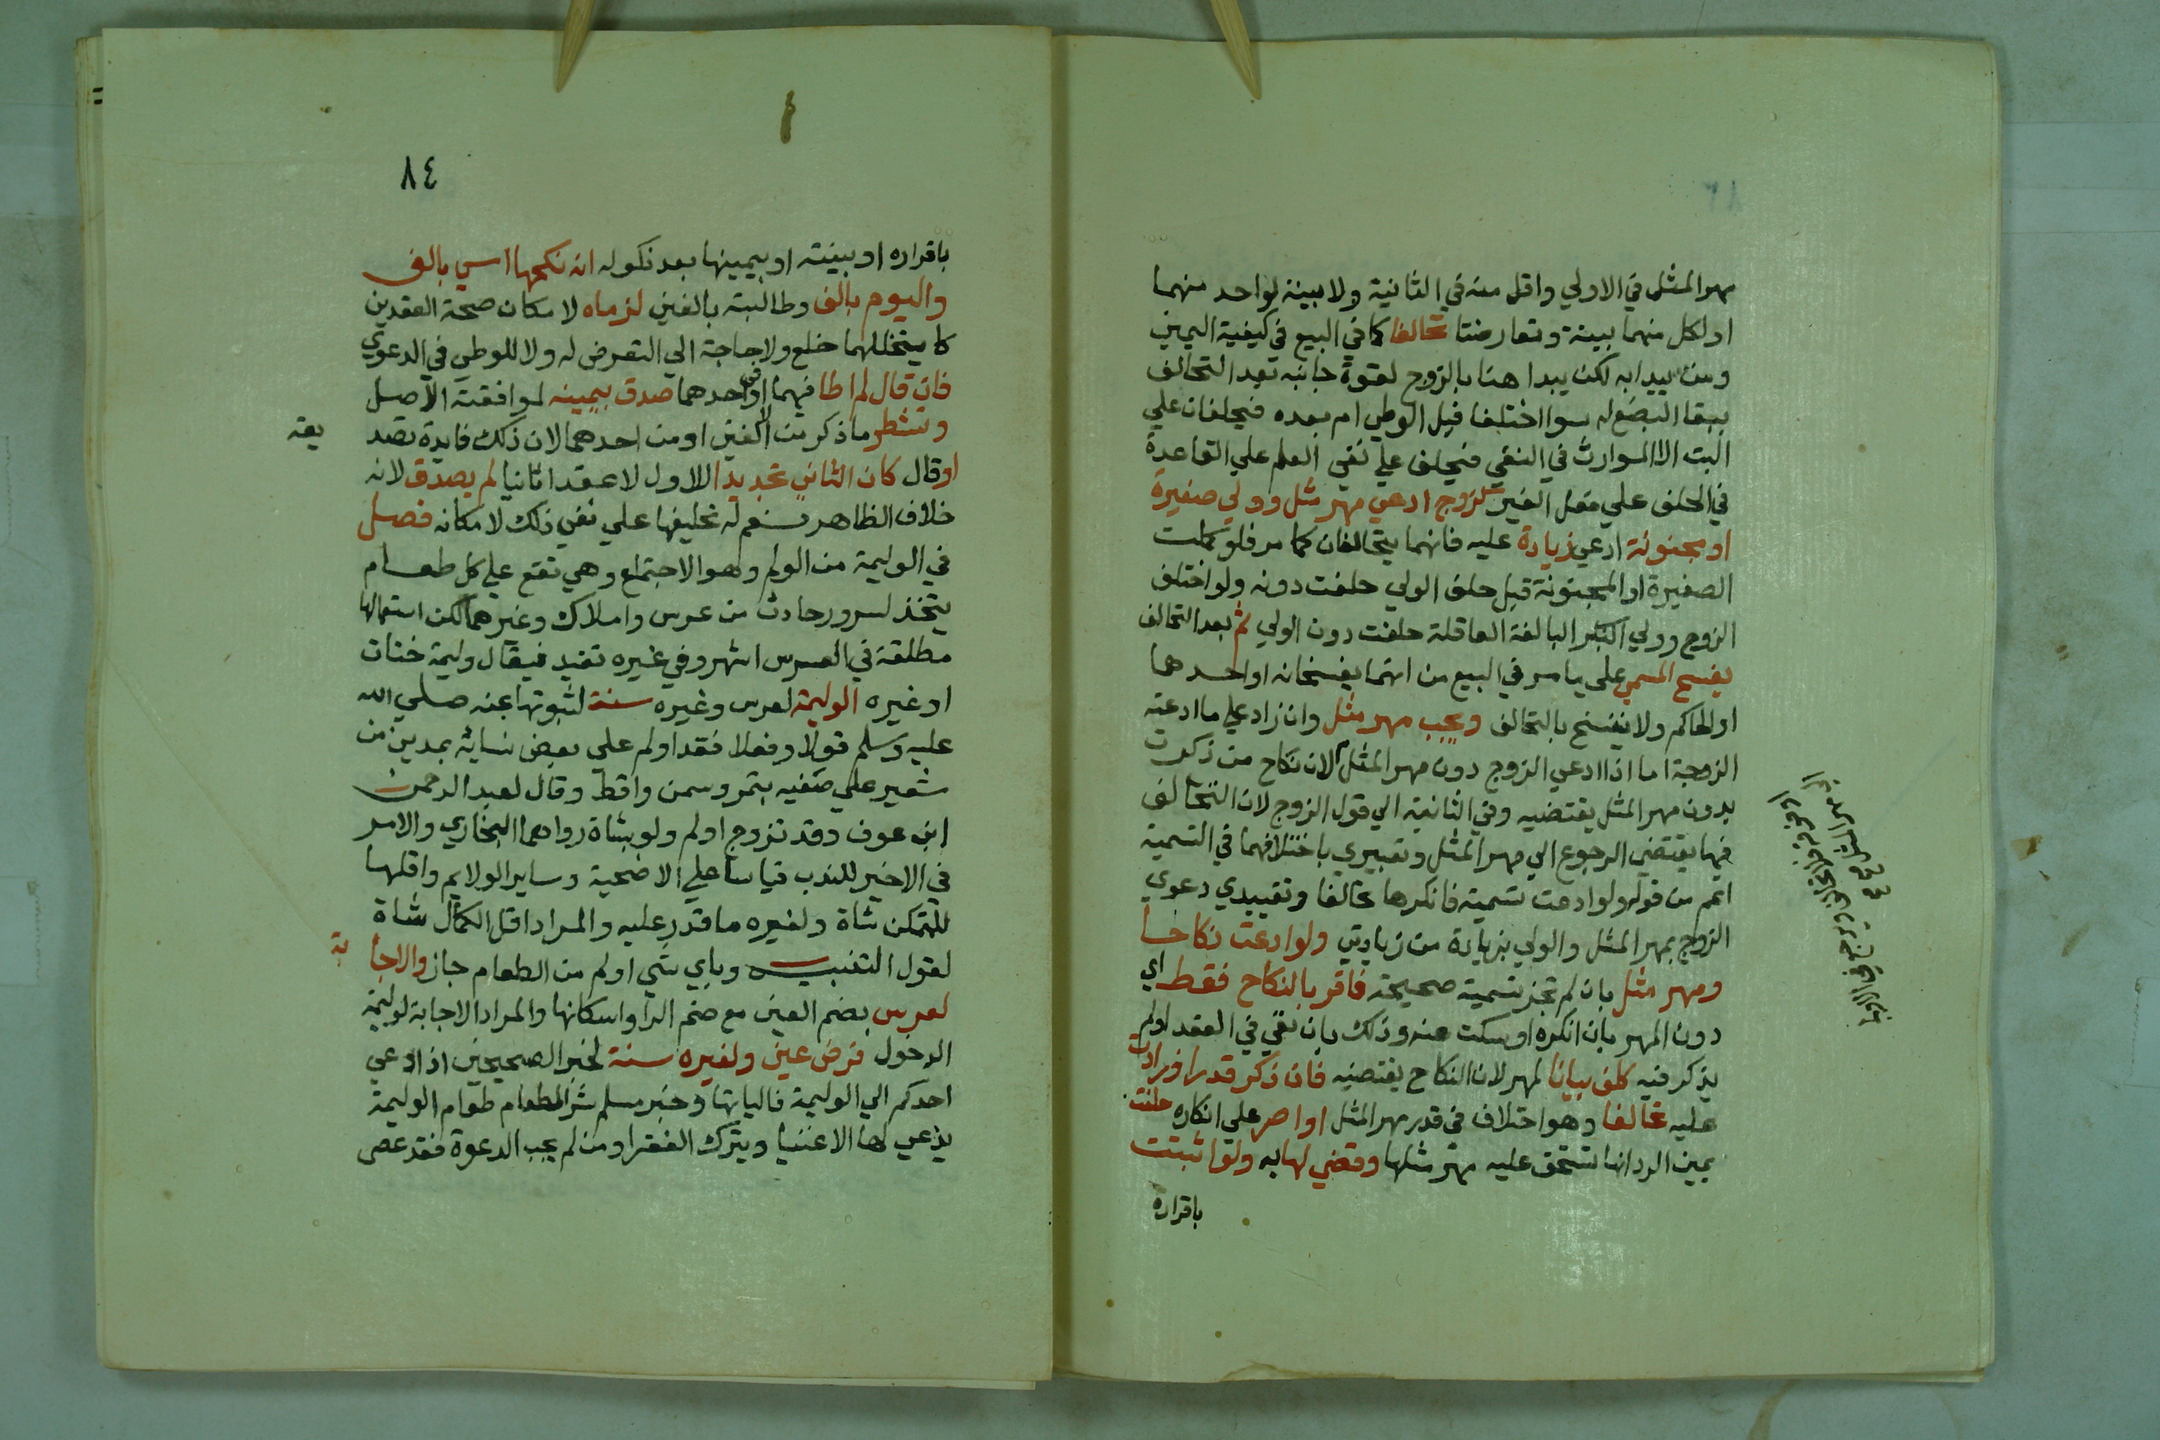 مهر المثل في الاولي واقل منه في الثانية ولا بينة لواحد منهما
او لكل منهما بينة وتعارضتا تحالفا كما في البيع في كيفية اليمين
ومن يبدا به لكن يبدا هنا بالزوج لقوة جانبه بعد التحالف
ببقا البضع له سوا اختلفا قبل الوطي ام بعده فيحلفان علي
البت الا الموارث في النفي فيحلف علي نفي العلم علي القاعدة
في الحلف علي فعل الغير كزوج ادعي مهر مثل وولي صغيرة
او مجنونة ادعي زيادة عليه فانهما يتحالفان كما مر فلو كملت
الصغيرة او المجنونة قبل حلف الولي حلفت دونه ولو اختلف
الزوج وولي البكر البالغة العاقلة حلفت دون الولي ثم بعد التحالف
يفسخ المسمي علي ما مر في البيع من انهما يفسخانه او احدهما
او الحاكم ولا ينفسخ بالتحالف ويجب مهر مثل وان زاد علي ما ادعته
الزوجة اما اذا ادعي الزوج دون مهر المثل لان نكاح من ذكرت
بدون مهر المثل يقتضيه وفي الثانية الي قول الزوج لان التحالف
فيها يقتضي الرجوع الي مهر المثل وتعبيري باختلافهما في التسمية
اعم من قوله ولو ادعت تسمية فانكرها تحالفا وتقييدي دعوي
الزوج بمهر المثل والولي بزيادة من زيادتي ولو ادعت نكاحا
ومهر مثل بان لم تجز تسمية صحيحة فاقر بالنكاح فقط اي
دون المهر بان انكره او سكت عنه وذلك بان نفي في العقد او لم
يذكر فيه كلف بيانا لمهر لان النكاح يقتضيه فان ذكر قدرا وزادت
عليه تحالفا وهو اختلاف في قدر مهر المثل او اصر علي انكاره حلفت
يمين الرد انها تستحق عليه مهر مثلها وقضي لها به ولو اثبتت
باقراره
٨٤
باقراره او بينة او بيمينها بعد نكوله انه نكحها امس بالف
واليوم بالف وطالبته بالفين لزماه لامكان صحة العقدين
كان يتخللهما خلع ولا حاجة الي التعرض له ولا للوطي في الدعوي
فان قال لم اطا فيهما او في احدهما صدق بيمينه لموافقته الاصل
وتشطر ما ذكر من الالفين او من احدهما لان ذلك فايدة تصد
يقه
او قال كان الثاني تجديدا للاول لا عقدا ثانيا لم يصدق لانه
خلاف الظاهر نعم له تحليفها علي نفي ذلك لامكانه فصل
في الوليمة من الولم وهو الاجتماع وهي تقع علي كل طعام
يتخذ لسرور حادث من عرس واملاك وغيرهما لكن استعمالها
مطلقة في العرس اشهر وفي غيره تقيد فيقال وليمة ختان
او غيره الوليمة لعرس وغيره سنة لثبوتها عنه صلي الله
عليه وسلم قولا وفعلا فقد اولم علي بعض نسايه بمدين من
شعير علي صفيه بتمر وسمن واقط وقال لعبد الرحمن
ابن عوف وقد تزوج اولم ولو بشاة رواهما البخاري والامر
في الاخير للندب قياسا علي الاضحية وساير الولايم واقلها
للمتمكن شاة ولغيره ما قدر عليه والمراد اقل الكمال شاة
لقول التنبيه وباي شي اولم من الطعام جاز والاجا
بة
لعرس بضم العين مع ضم الرا واسكانها والمراد الاجابة لوليمة
الدخول فرض عين ولغيره سنة لخبر الصحيحين اذا دعي
احدكم الي الوليمة فالياتها وخبر مسلم شر الطعام طعام الوليمة
يدعي لها الاغنيا ويترك الفقرا ومن لم يجب الدعوة فقد عصي